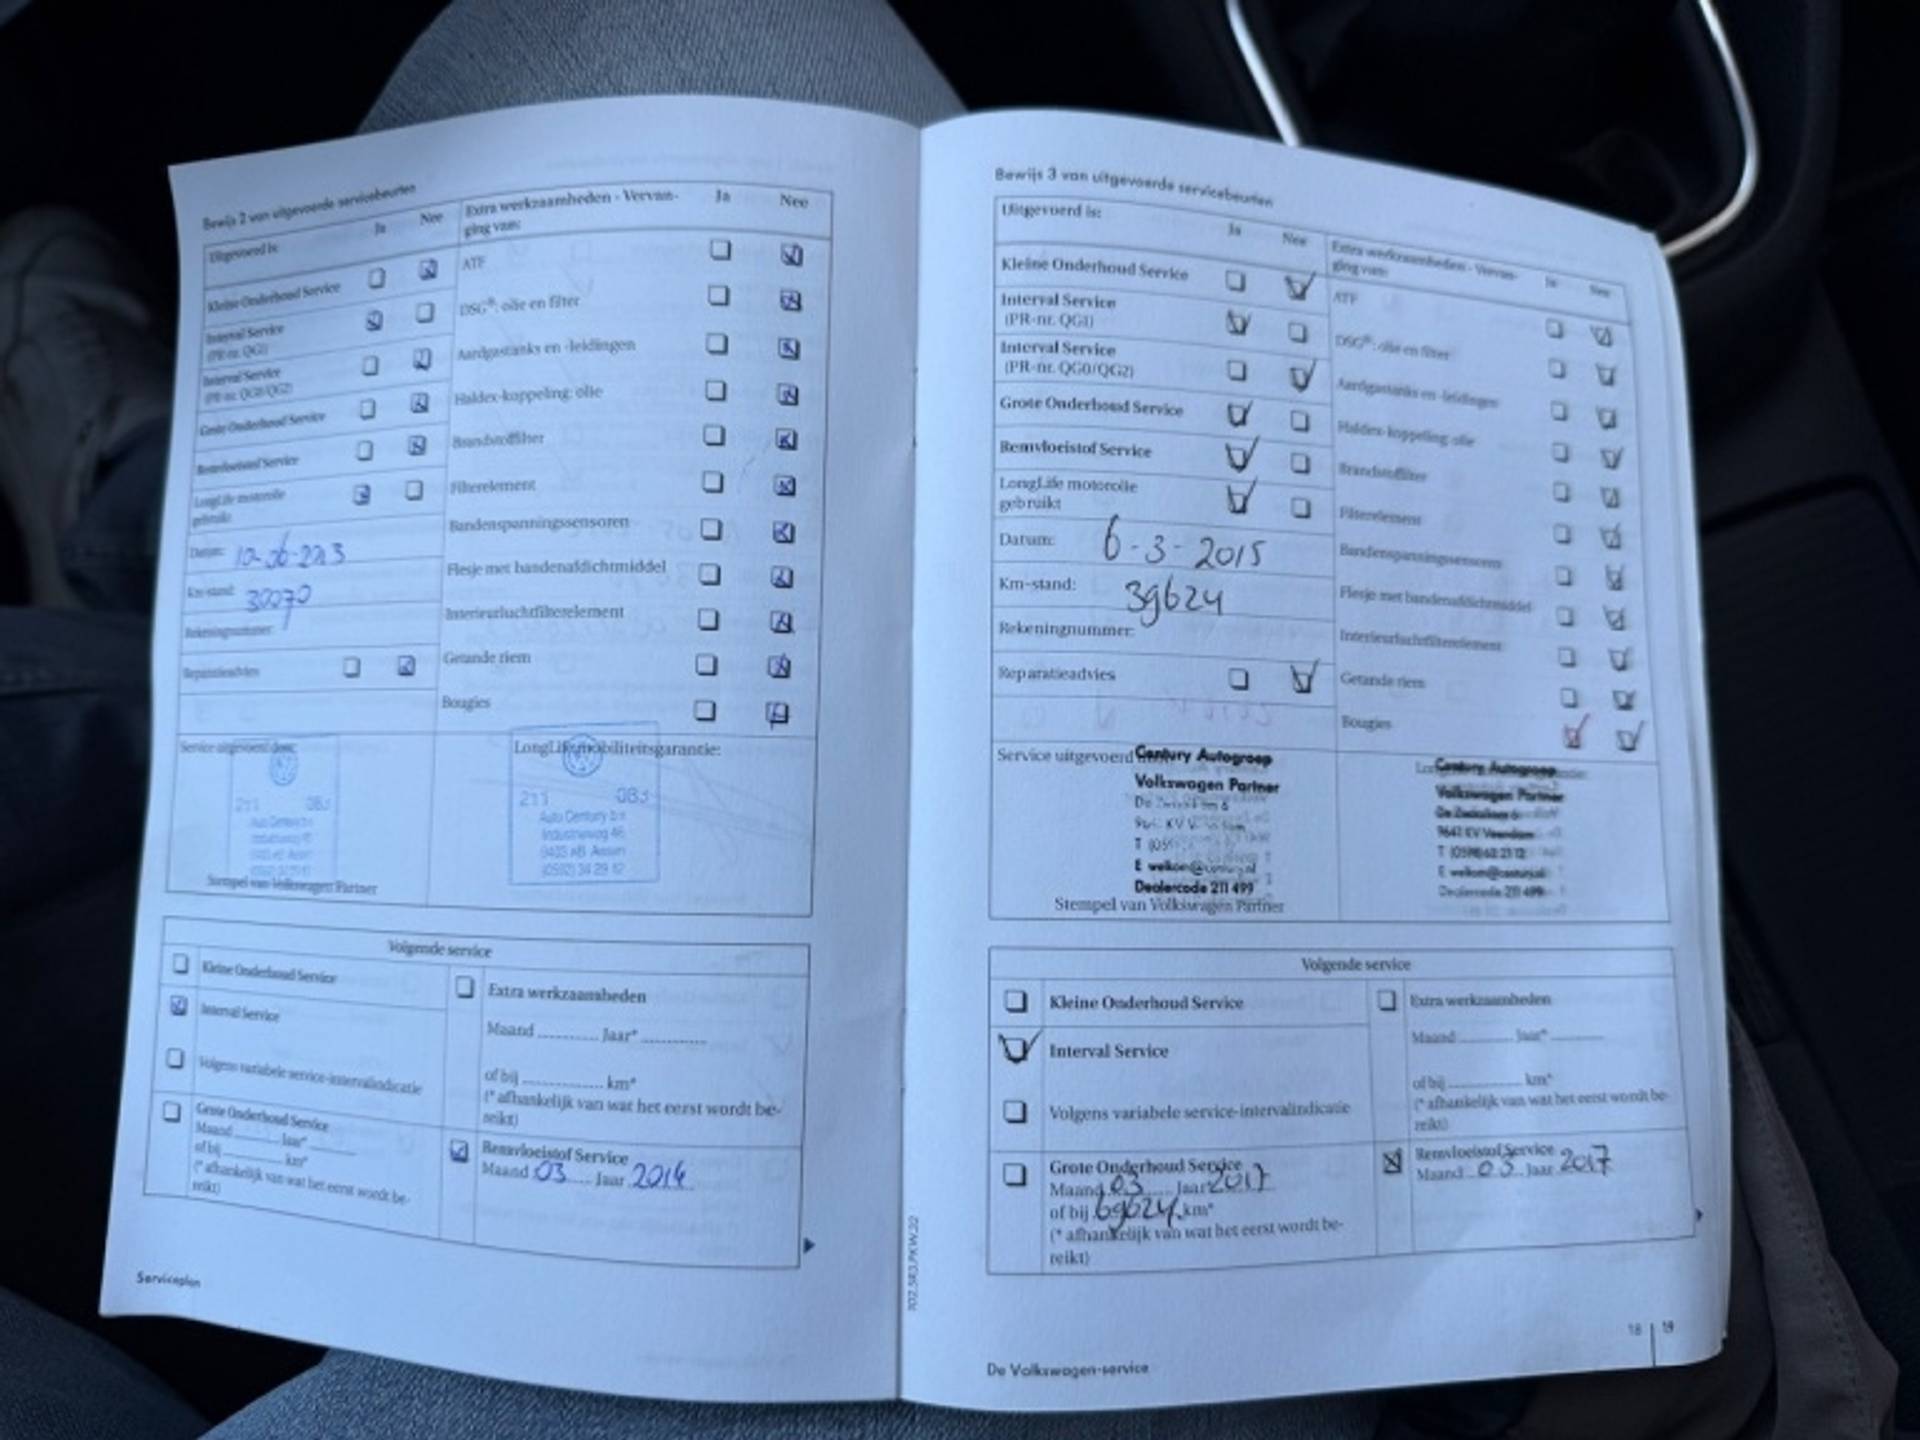 Bewijs 2 van uitgevoerde servicebeurten
Uitgevoerd is: Ja Nee
Kleine Onderhoud Service
Interval Service
(PR-nr. QG1)
Interval Service
(PR-nr. QG0/QG2)
Grote Onderhoud Service
Remvloeistof Service
LongLife motorolie
gebruikt
Datum: 10-06-2013
Km-stand: 30070
Rekeningnummer:
Reparatieadvies
Extra werkzaamheden - Vervan- Ja Nee
ging van:
ATF
DSG®: olie en filter
Aardgastanks en -leidingen
Haldex-koppeling: olie
Brandstoffilter
Filterelement
Bandenspanningssensoren
Flesje met bandenafdichtmiddel
Interieurluchtfilterelement
Getande riem
Bougies
Service uitgevoerd door:
211 083
Auto Century b.v.
Industrieweg 46
9403 AB Assen
Stempel van Volkswagen Partner
LongLife mobiliteitsgarantie:
211 083
Auto Century b.v.
Industrieweg 46
9403 AB Assen
(0592) 34 29 12
Volgende service
Kleine Onderhoud Service
Interval Service
Volgens variabele service-intervalindicatie
Grote Onderhoud Service
Maand ........ Jaar* ........
of bij ........ km*
(* afhankelijk van wat het eerst wordt be-
reikt)
Extra werkzaamheden
Maand ........ Jaar* ........
of bij ........ km*
(* afhankelijk van wat het eerst wordt be-
reikt)
Remvloeistof Service
Maand 03 Jaar 2014
Serviceplan
Bewijs 3 van uitgevoerde servicebeurten
Uitgevoerd is: Ja Nee
Kleine Onderhoud Service
Interval Service
(PR-nr. QG1)
Interval Service
(PR-nr. QG0/QG2)
Grote Onderhoud Service
Remvloeistof Service
LongLife motorolie
gebruikt
Datum: 6-3-2015
Km-stand: 39624
Rekeningnummer:
Reparatieadvies
Extra werkzaamheden - Vervan- Ja Nee
ging van:
ATF
DSG®: olie en filter
Aardgastanks en -leidingen
Haldex-koppeling: olie
Brandstoffilter
Filterelement
Bandenspanningssensoren
Flesje met bandenafdichtmiddel
Interieurluchtfilterelement
Getande riem
Bougies
Service uitgevoerd
Century Autogroep
Volkswagen Partner
E welkom@century.nl
Dealercode 211 499
Stempel van Volkswagen Partner
Century Autogroep
Volkswagen Partner
9641 KV Veendam
T (0598) 62 23 12
E welkom@century.nl
Dealercode 211 499
Volgende service
Kleine Onderhoud Service
Interval Service
Volgens variabele service-intervalindicatie
Grote Onderhoud Service
Maand 03 Jaar 2017
of bij 69624 km*
(* afhankelijk van wat het eerst wordt be-
reikt)
Extra werkzaamheden
Maand ........ Jaar* ........
of bij ........ km*
(* afhankelijk van wat het eerst wordt be-
reikt)
Remvloeistof Service
Maand 03 Jaar 2017
De Volkswagen-service
18 19